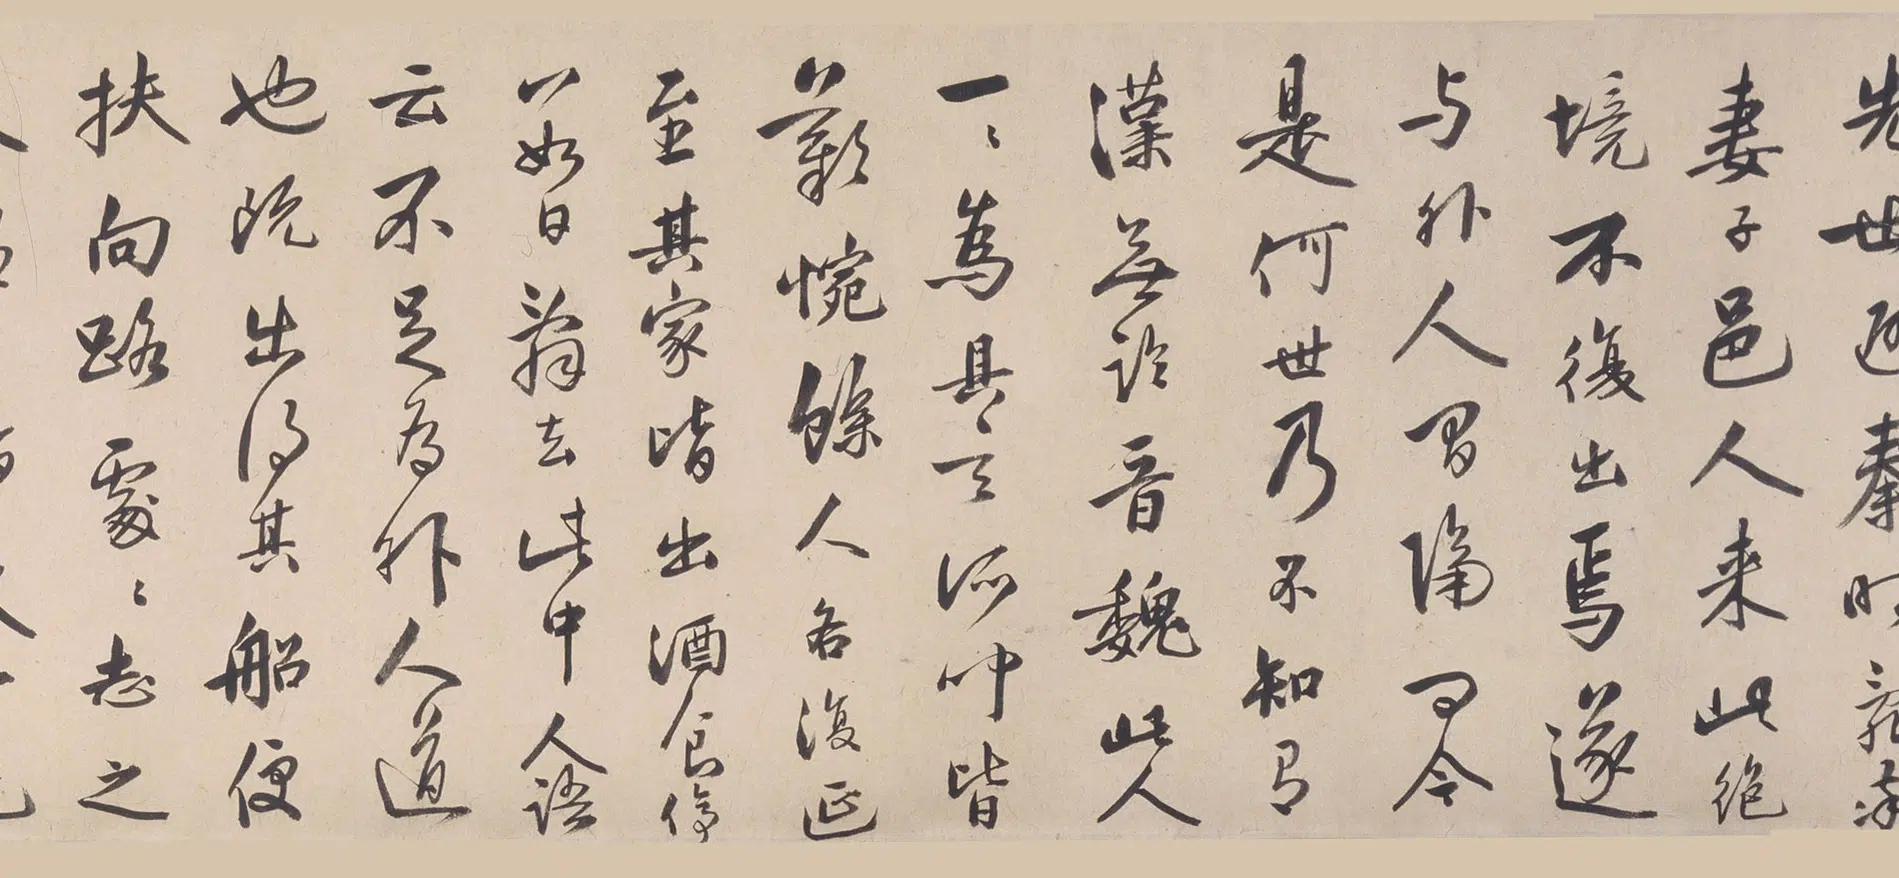 先世避秦時亂率
妻子邑人来此絶
境不復出焉遂
与外人間隔問今
是何世乃不知有
漢無論晉魏此人
一〻為具言所皆
歎惋餘人各復延
至其家皆出酒食停
數日辭去此中人語
云不足為外人道
也既出得其船便
扶向路處〻志之